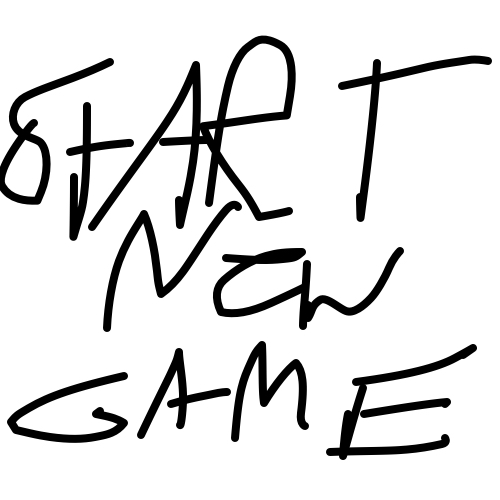 START
NEW
GAME